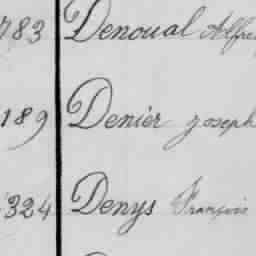 783 Denoual Alfre
189 Denier Joseph
324 Denys François